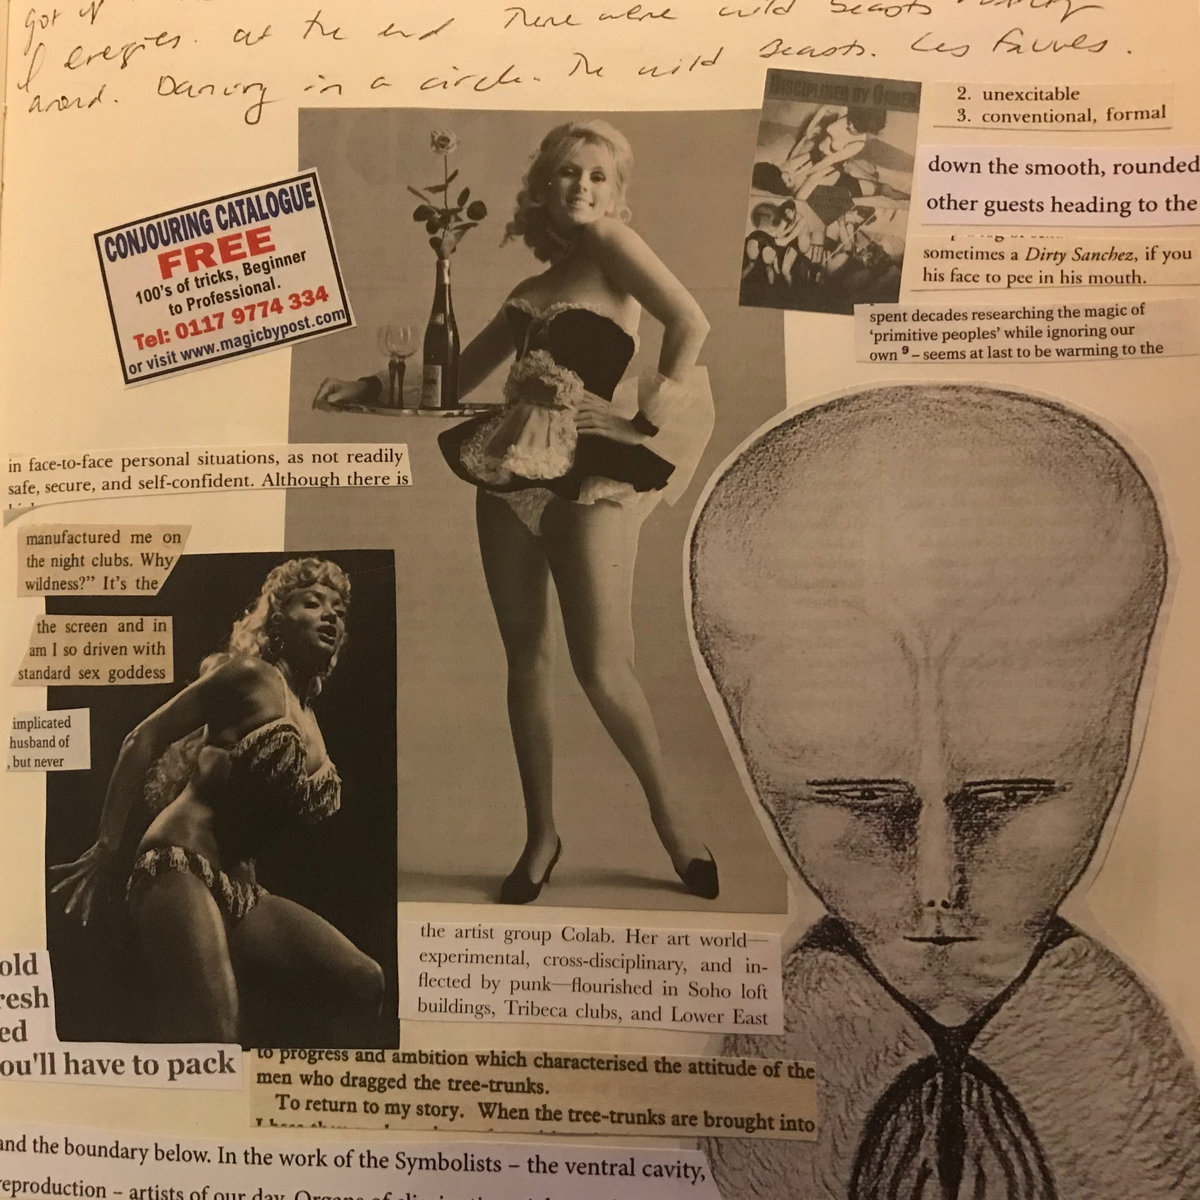 got
energies. at the end There were wild beasts
around. Dancing in a circle. The wild Beasts. Les Fauves.
DISCIPLINED BY ORDER
2. unexcitable
3. conventional, formal
down the smooth, rounded
other guests heading to the
sometimes a Dirty Sanchez, if you
his face to pee in his mouth.
spent decades researching the magic of
‘primitive peoples’ while ignoring our
own 9 – seems at last to be warming to the
CONJOURING CATALOGUE
FREE
100's of tricks, Beginner
to Professional.
Tel: 0117 9774 334
or visit www.magicbypost.com
in face-to-face personal situations, as not readily
safe, secure, and self-confident. Although there is
manufactured me on
the night clubs. Why
wildness?” It's the
the screen and in
am I so driven with
standard sex goddess
implicated
husband of
, but never
old
resh
ed
ou'll have to pack
the artist group Colab. Her art world—
experimental, cross-disciplinary, and in-
flected by punk—flourished in Soho loft
buildings, Tribeca clubs, and Lower East
to progress and ambition which characterised the attitude of the
men who dragged the tree-trunks.
To return to my story. When the tree-trunks are brought into
and the boundary below. In the work of the Symbolists – the ventral cavity,
eproduction – artists of our day. Organs of